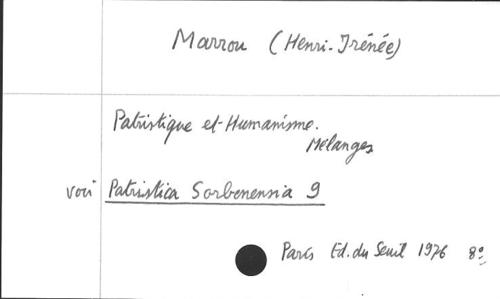 Marrou (Henri-Irénée)
Patristique et Humanisme.
Mélanges
voir Patristica Sorbonensia 9
Paris Ed. du Seuil 1976 8º